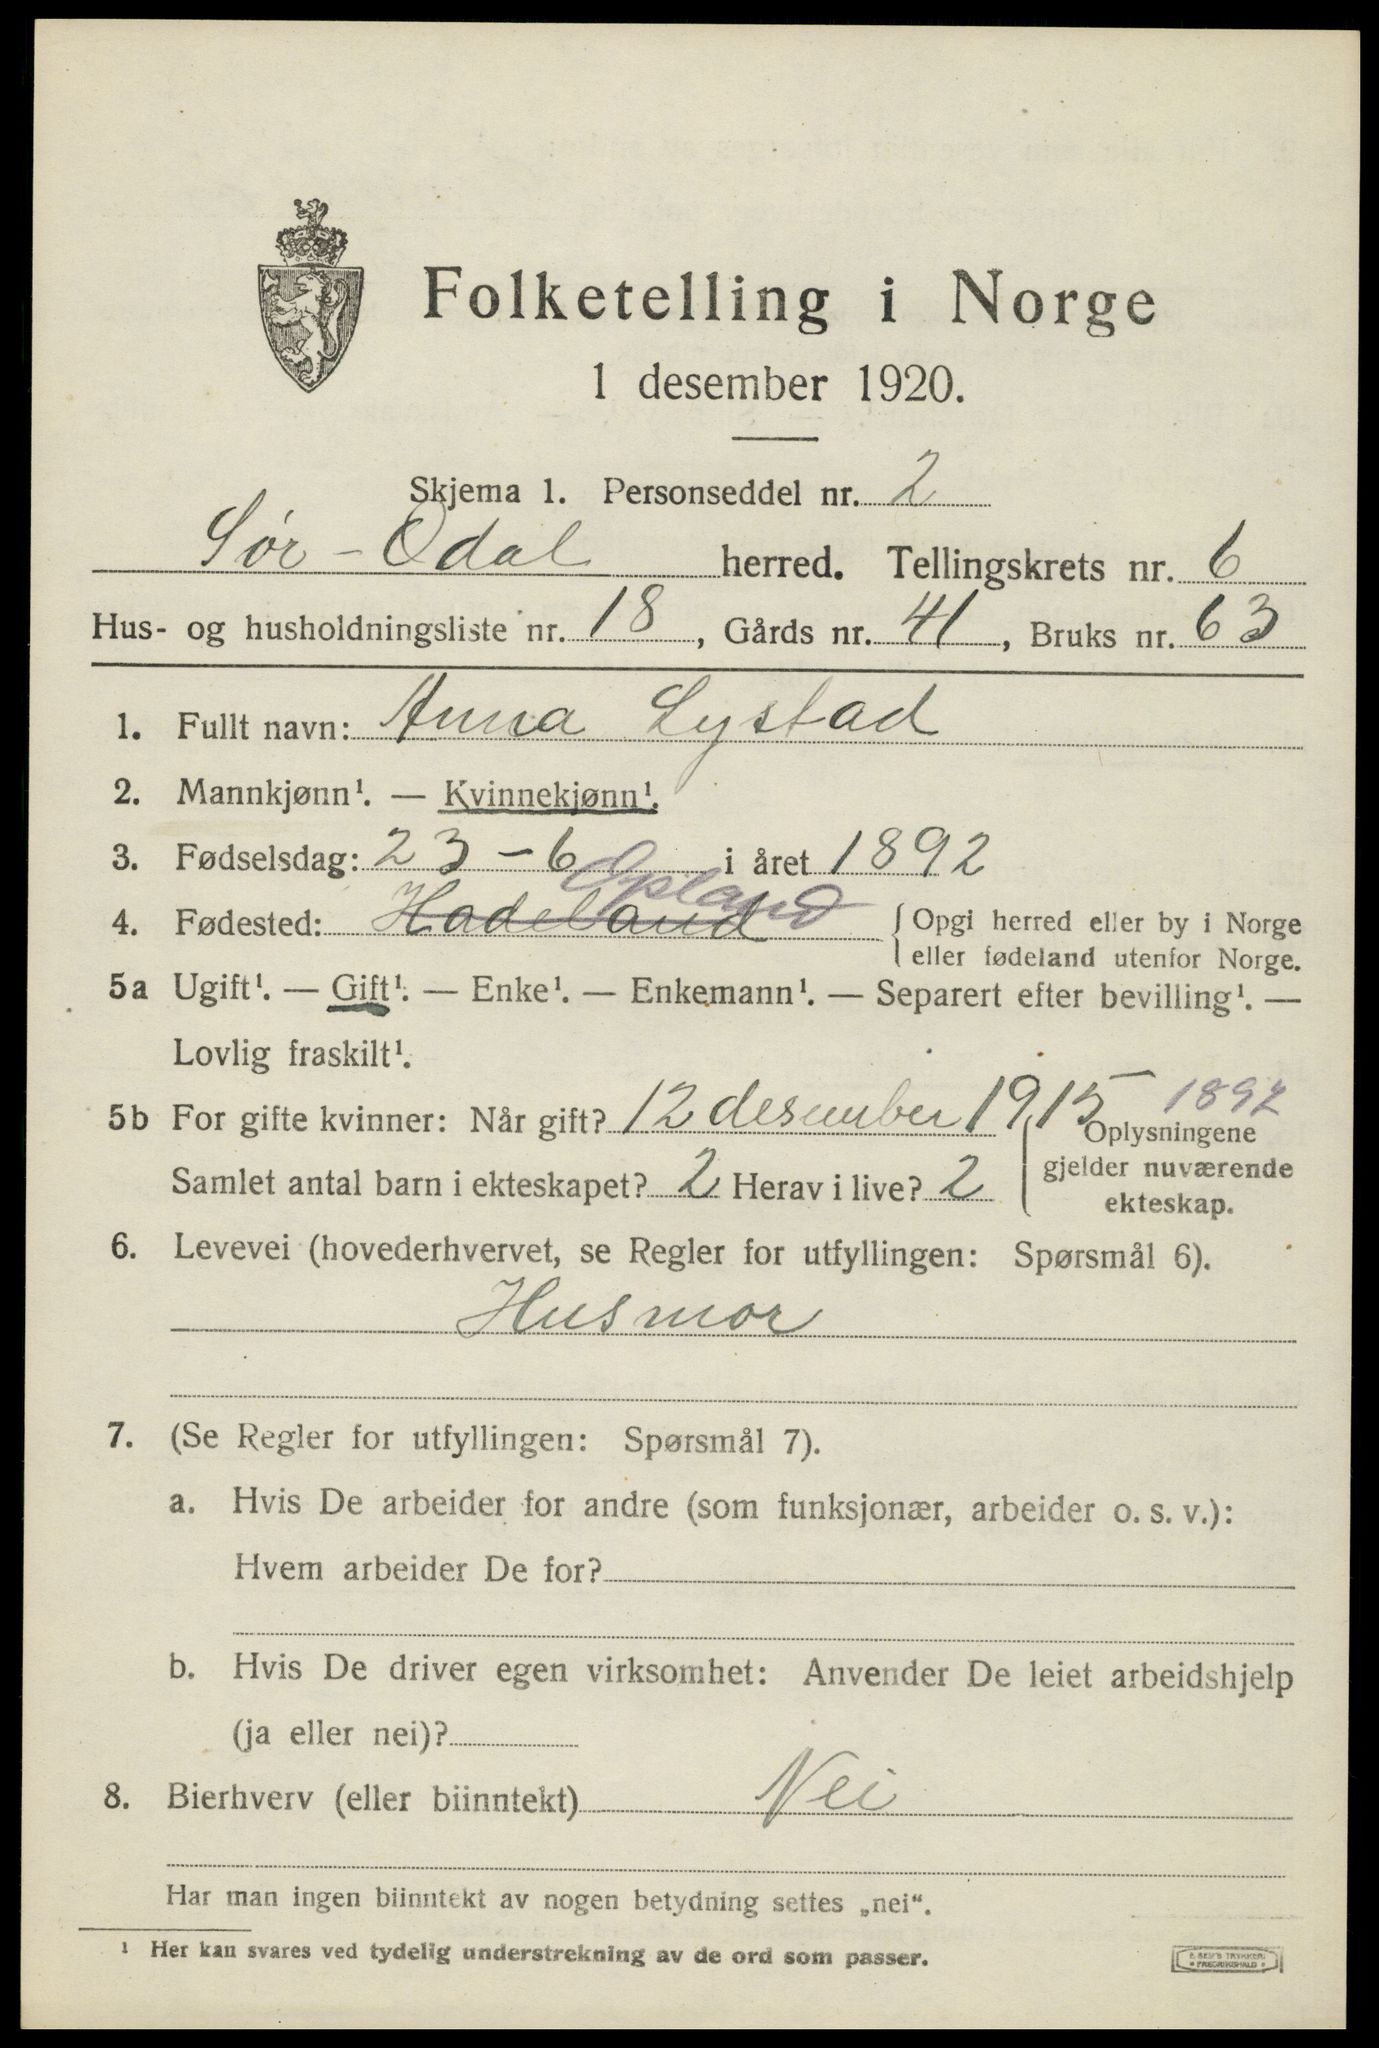 Folketelling i Norge
1 desember 1920.
Skjema 1. Personseddel nr. 2
Sør-Odal herred. Tellingskrets nr. 6
Hus- og husholdningsliste nr. 18, Gårds nr. 41, Bruks nr. 63
1. Fullt navn: Anna Lystad
2. Mannkjønn¹. — Kvinnekjønn¹.
3. Fødselsdag: 23-6 i året 1892
Opland
4. Fødested: Hadeland { Opgi herred eller by i Norge
eller fødeland utenfor Norge.
5a Ugift¹. — Gift¹. — Enke¹. — Enkemann¹. — Separert efter bevilling¹. —
Lovlig fraskilt¹.
5b For gifte kvinner: Når gift? 12 desember 1915 1892
Oplysningene
gjelder nuværende
ekteskap.
Samlet antal barn i ekteskapet? 2 Herav i live? 2
6. Levevei (hovederhvervet, se Regler for utfyllingen: Spørsmål 6).
Husmor
7. (Se Regler for utfyllingen: Spørsmål 7).
a. Hvis De arbeider for andre (som funksjonær, arbeider o. s. v.):
Hvem arbeider De for?
b. Hvis De driver egen virksomhet: Anvender De leiet arbeidshjelp
(ja eller nei)?
8. Bierhverv (eller biinntekt) Nei
Har man ingen biinntekt av nogen betydning settes „nei“.
¹ Her kan svares ved tydelig understrekning av de ord som passer.
E. SEM'S TRYKKERI
FREDRIKSHALD